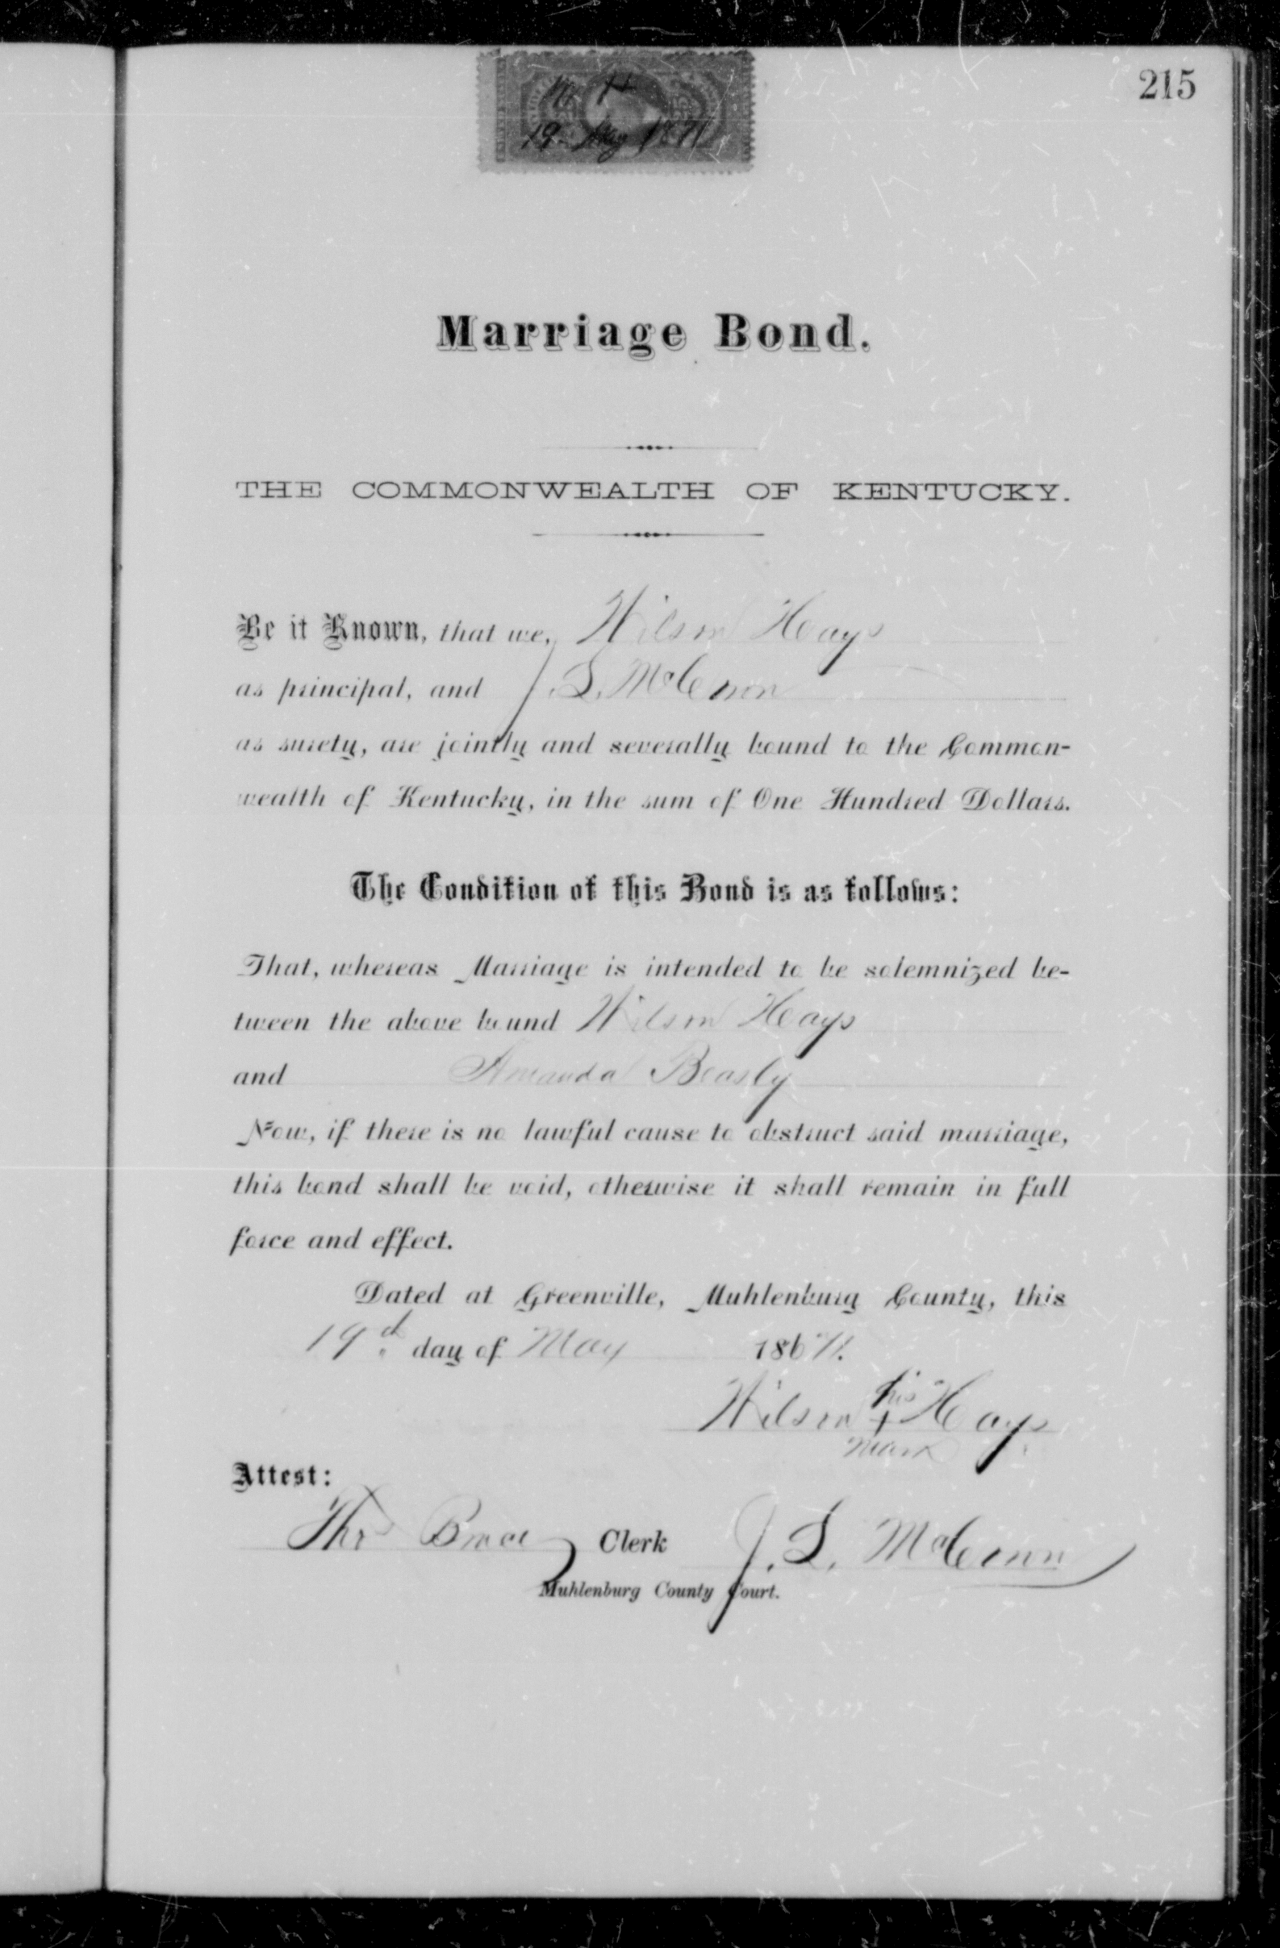 215
W H
19th May 1871
Marriage Bond.
THE COMMONWEALTH OF KENTUCKY.
Be it Known, that we, Wilson Hays
as principal, and J. S. McCown
as surety, are jointly and severally bound to the Common-
wealth of Kentucky, in the sum of One Hundred Dollars.
The Condition of this Bond is as follows:
That, whereas Marriage is intended to be solemnized be-
tween the above bound Wilson Hays
and Amanda Beasly
Now, if there is no lawful cause to obstruct said marriage,
this bond shall be void, otherwise it shall remain in full
force and effect.
Dated at Greenville, Muhlenburg County, this
19d day of May 1871.
Wilson his + mark Hays
Attest:
Thos Bruce Clerk J. S. McCown
Muhlenburg County Court.